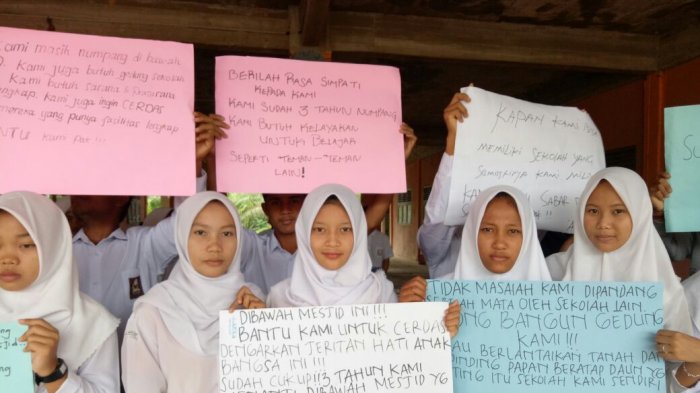 Kami masih numpang di bawah
Kami juga butuh gedung sekolah
Kami butuh sarana & prasarana
lengkap. Kami juga ingin CERDAS
mereka yang punya fasilitas lengkap
BANTU kami Pak!!!
BERILAH RASA SIMPATI
KEPADA KAMI
KAMI SUDAH 3 TAHUN NUMPANG
KAMI BUTUH KELAYAKAN
UNTUK BELAJAR
SEPERTI TEMAN-TEMAN
LAIN!
KAPAN KAMI BISA
MEMILIKI SEKOLAH YANG
KAMI SABAR
DIBAWAH MESJID INI!!!
BANTU KAMI UNTUK CERDAS,
DENGARKAN JERITAN HATI ANAK
BANGSA INI!!!
SUDAH CUKUP!! 3 TAHUN KAMI
DIBAWAH MESJID YG
TIDAK MASALAH KAMI DIPANDANG
SEBELAH MATA OLEH SEKOLAH LAIN
BANGUN GEDUNG
KAMI!!!
BERLANTAIKAN TANAH DAN
PAPAN BERATAP DAUN YG
ITU SEKOLAH KAMI SENDIRI